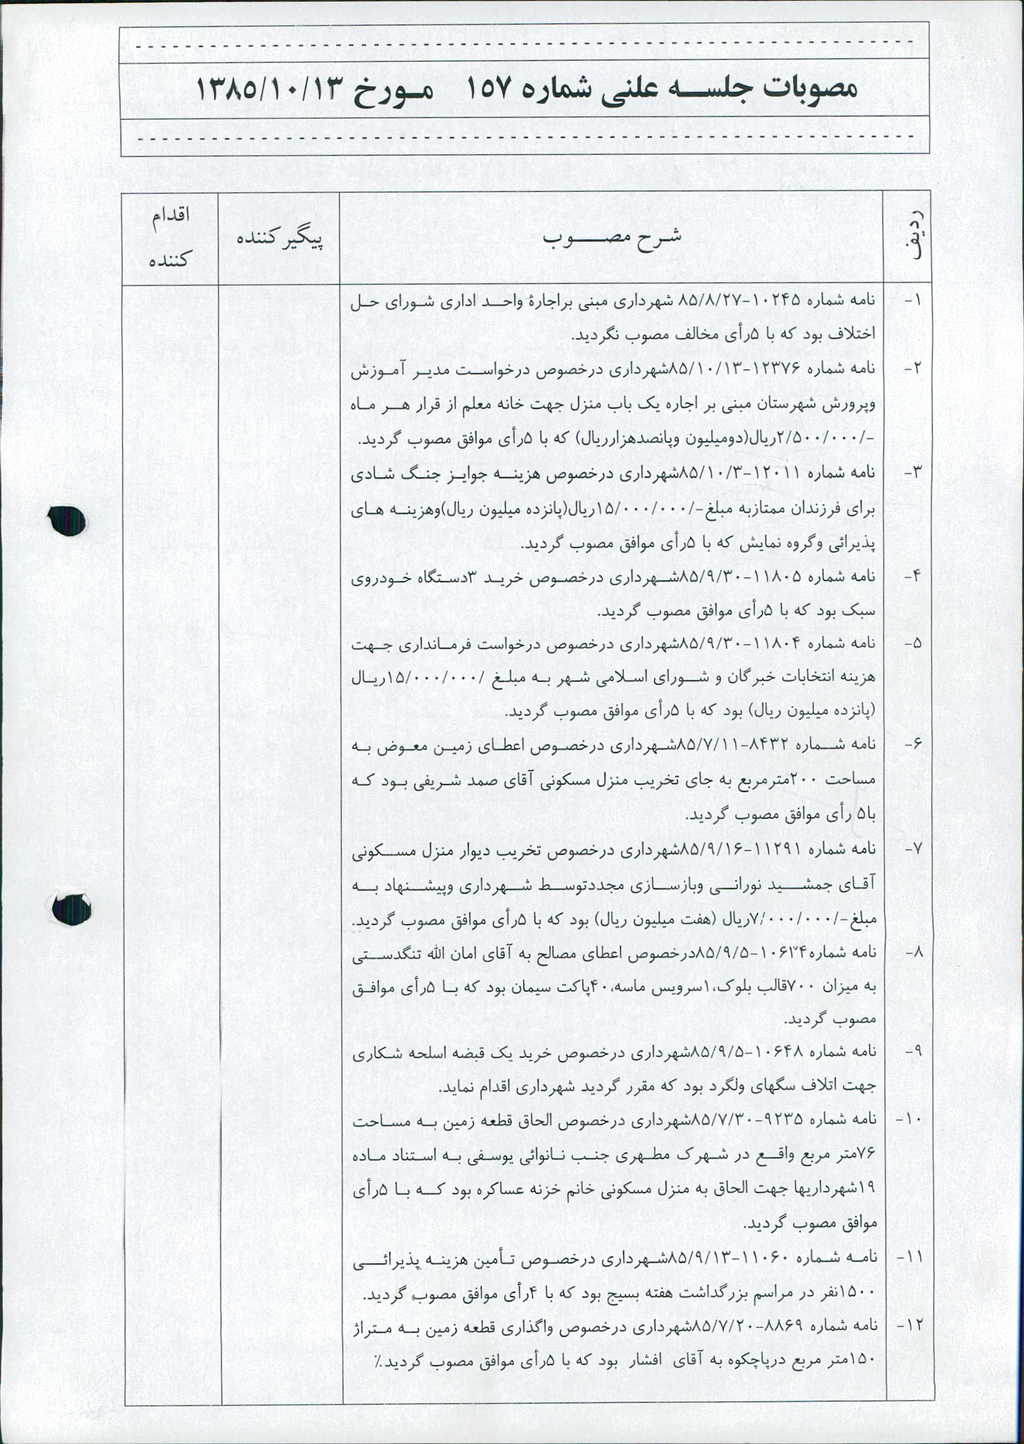 مصوبات جلسه علنی شماره ۱۵۷ مورخ ۱۳۸۵/۱۰/۱۳
ردیف
شرح مصوب
پیگیر کننده
اقدام
کننده
۱- نامه شماره ۱۰۲۴۵-۸۵/۸/۲۷ شهرداری مبنی براجارهٔ واحد اداری شورای حل
اختلاف بود که با ۵رأی مخالف مصوب نگردید.
۲- نامه شماره ۱۲۳۷۶-۸۵/۱۰/۱۳شهرداری درخصوص درخواست مدیر آموزش
وپرورش شهرستان مبنی بر اجاره یک باب منزل جهت خانه معلم از قرار هر ماه
-/۲/۵۰۰/۰۰۰ریال(دومیلیون وپانصدهزارریال) که با ۵رأی موافق مصوب گردید.
۳- نامه شماره ۱۲۰۱۱-۸۵/۱۰/۳شهرداری درخصوص هزینه جوایز جنگ شادی
برای فرزندان ممتازبه مبلغ-/۱۵/۰۰۰/۰۰۰ریال(پانزده میلیون ریال)وهزینه های
پذیرائی وگروه نمایش که با ۵رأی موافق مصوب گردید.
۴- نامه شماره ۱۱۸۰۵-۸۵/۹/۳۰شهرداری درخصوص خرید ۳دستگاه خودروی
سبک بود که با ۵رأی موافق مصوب گردید.
۵- نامه شماره ۱۱۸۰۴-۸۵/۹/۳۰شهرداری درخصوص درخواست فرمانداری جهت
هزینه انتخابات خبرگان و شورای اسلامی شهر به مبلغ /۱۵/۰۰۰/۰۰۰ریال
(پانزده میلیون ریال) بود که با ۵رأی موافق مصوب گردید.
۶- نامه شماره ۸۴۳۲-۸۵/۷/۱۱شهرداری درخصوص اعطای زمین معوض به
مساحت ۲۰۰مترمربع به جای تخریب منزل مسکونی آقای صمد شریفی بود که
با۵ رأی موافق مصوب گردید.
۷- نامه شماره ۱۱۲۹۱-۸۵/۹/۱۶شهرداری درخصوص تخریب دیوار منزل مسکونی
آقای جمشید نورانی وبازسازی مجددتوسط شهرداری وپیشنهاد به
مبلغ-/۷/۰۰۰/۰۰۰ریال (هفت میلیون ریال) بود که با ۵رأی موافق مصوب گردید.
۸- نامه شماره۱۰۶۲۴-۸۵/۹/۵درخصوص اعطای مصالح به آقای امان الله تنگدستی
به میزان ۷۰۰قالب بلوک،۱سرویس ماسه،۴۰پاکت سیمان بود که با ۵رأی موافق
مصوب گردید.
۹- نامه شماره ۱۰۶۴۸-۸۵/۹/۵شهرداری درخصوص خرید یک قبضه اسلحه شکاری
جهت اتلاف سگهای ولگرد بود که مقرر گردید شهرداری اقدام نماید.
۱۰- نامه شماره ۹۲۳۵-۸۵/۷/۳۰شهرداری درخصوص الحاق قطعه زمین به مساحت
۷۶متر مربع واقع در شهرک مطهری جنب نانوائی یوسفی به استناد ماده
۱۹شهرداریها جهت الحاق به منزل مسکونی خانم خزنه عساکره بود که با ۵رأی
موافق مصوب گردید.
۱۱- نامه شماره ۱۱۰۶۰-۸۵/۹/۱۳شهرداری درخصوص تأمین هزینه پذیرائی
۱۵۰۰نفر در مراسم بزرگداشت هفته بسیج بود که با ۴رأی موافق مصوب گردید.
۱۲- نامه شماره ۸۸۶۹-۸۵/۷/۲۰شهرداری درخصوص واگذاری قطعه زمین به متراژ
۱۵۰متر مربع درپاچکوه به آقای افشار بود که با ۵رأی موافق مصوب گردید.٪